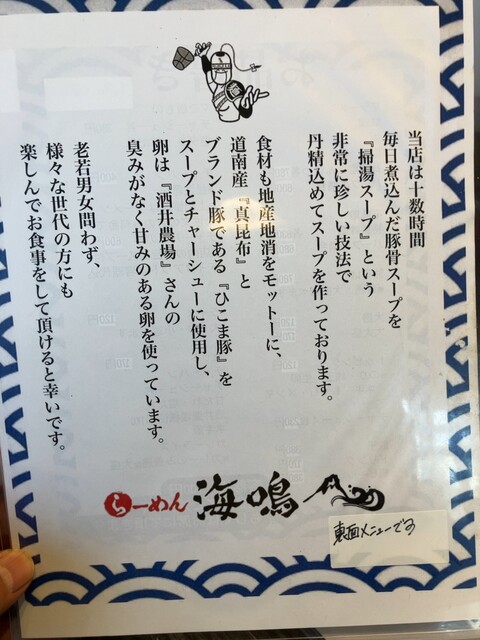 当店は十数時間
毎日煮込んだ豚骨スープを
『掃湯スープ』という
非常に珍しい技法で
丹精込めてスープを作っております。
食材も地産地消をモットーに、
道南産『真昆布』と
ブランド豚である『ひこま豚』を
スープとチャーシューに使用し、
卵は『酒井農場』さんの
臭みがなく甘みのある卵を使っています。
老若男女問わず、
様々な世代の方にも
楽しんでお食事をして頂けると幸いです。
らーめん 海鳴
裏面メニューです